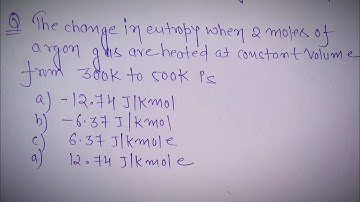 Q The change in entropy when 2 moles of
argon gas are heated at constant volume
from 300K to 500K is
a) -12.74 J/Kmol
b) -6.37 J/Kmol
c) 6.37 J/Kmole
d) 12.74 J/Kmole